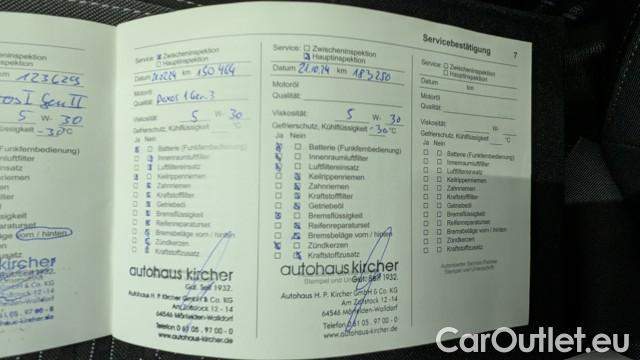 Servicebestätigung 7
123629
Gen II
5 W- 30
-30°C
(Funkfernbedienung)
vorn / hinten
kircher
Service: Zwischeninspektion
Hauptinspektion
Datum km 150.464
Motoröl
Qualität:
Viskosität: 5 W- 30
Gefrierschutz, Kühlflüssigkeit °C
Ja Nein
Batterie (Funkfernbedienung)
Innenraumluftfilter
Luftfiltereinsatz
Keilrippenriemen
Zahnriemen
Kraftstofffilter
Getriebeöl
Bremsflüssigkeit
Reifenreparaturset
Bremsbeläge vorn / hinten
Zündkerzen
Kraftstoffzusatz
autohaus kircher
Gut. Seit 1932.
Autohaus H. P. Kircher GmbH & Co. KG
Am Zollstock 12 - 14
64546 Mörfelden-Walldorf
Telefon 0 61 05 . 97 00 - 0
www.autohaus-kircher.de
Service: Zwischeninspektion
Hauptinspektion
Datum 21.10.24 km 183.250
Motoröl
Qualität:
Viskosität: 5 W- 30
Gefrierschutz, Kühlflüssigkeit -30°C
Ja Nein
Batterie (Funkfernbedienung)
Innenraumluftfilter
Luftfiltereinsatz
Keilrippenriemen
Zahnriemen
Kraftstofffilter
Getriebeöl
Bremsflüssigkeit
Reifenreparaturset
Bremsbeläge vorn / hinten
Zündkerzen
Kraftstoffzusatz
autohaus kircher
Gut. Seit 1932.
Autohaus H. P. Kircher GmbH & Co. KG
Am Zollstock 12 - 14
64546 Mörfelden-Walldorf
Telefon 0 61 05 . 97 00 - 0
www.autohaus-kircher.de
Service: Zwischeninspektion
Hauptinspektion
Datum
km
Motoröl
Qualität:
Viskosität: W-
Gefrierschutz, Kühlflüssigkeit °C
Ja Nein
Batterie (Funkfernbedienung)
Innenraumluftfilter
Luftfiltereinsatz
Keilrippenriemen
Zahnriemen
Kraftstofffilter
Getriebeöl
Bremsflüssigkeit
Reifenreparaturset
Bremsbeläge vorn / hinten
Zündkerzen
Kraftstoffzusatz
Autorisierter Service Partner
Stempel und Unterschrift
CarOutlet.eu